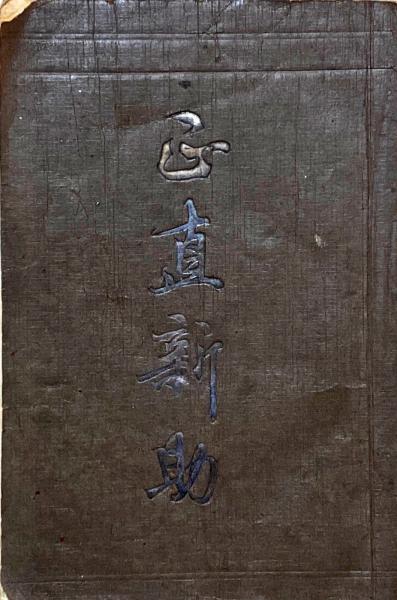 正直新助